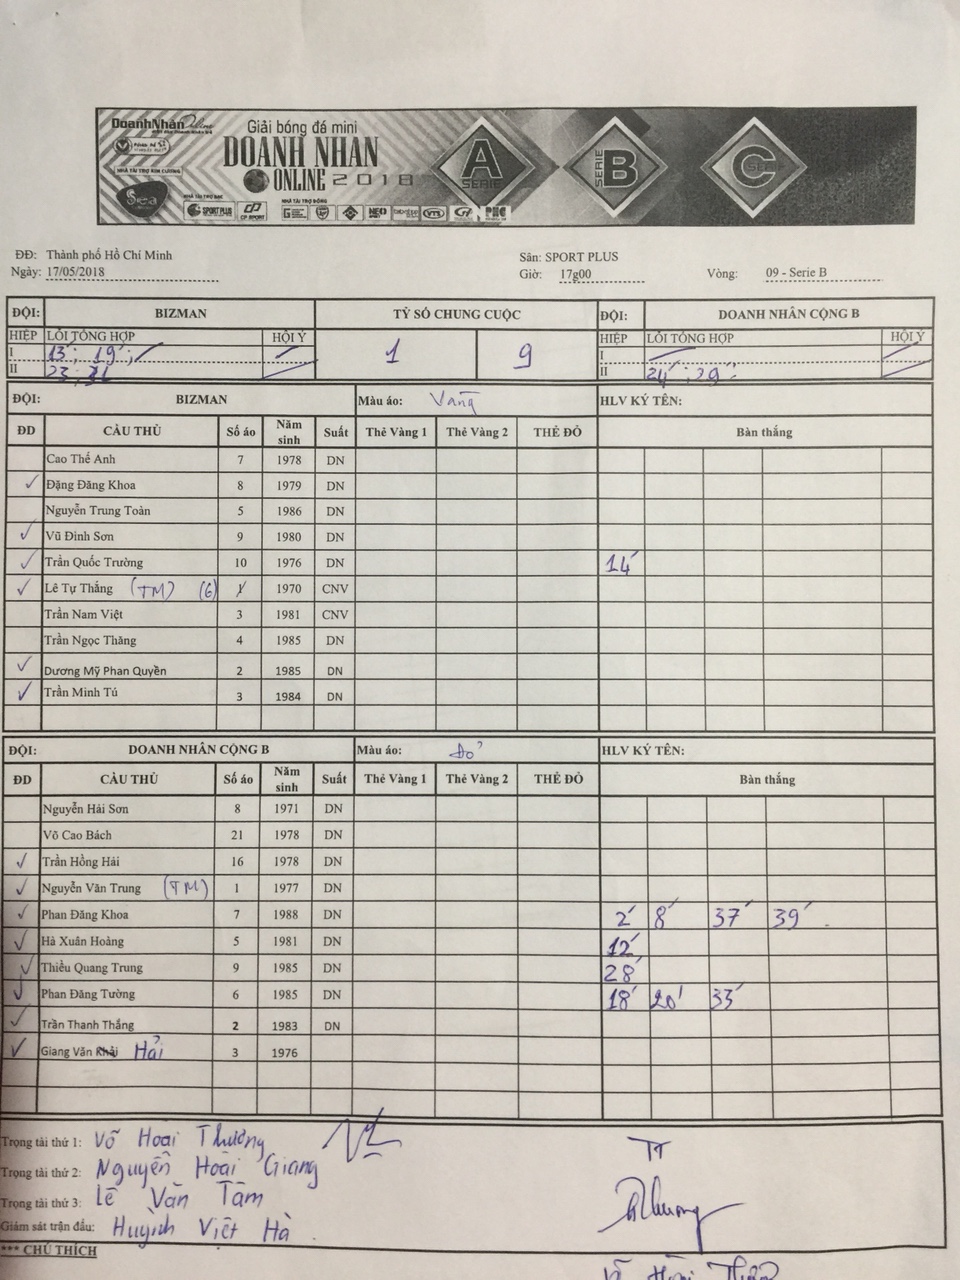 DoanhNhânOnline
Giải bóng đá mini
DOANH NHÂN
ONLINE 2018
A SERIE
SERIE B
C
NHÀ TÀI TRỢ KIM CƯƠNG
Sea
NHÀ TÀI TRỢ BẠC
SPORT PLUS
CP SPORT
NHÀ TÀI TRỢ ĐỒNG
ĐĐ: Thành phố Hồ Chí Minh Sân: SPORT PLUS
Ngày: 17/05/2018 Giờ: 17g00 Vòng: 09 - Serie B
ĐỘI: BIZMAN TỶ SỐ CHUNG CUỘC ĐỘI: DOANH NHÂN CỘNG B
HIỆP LỖI TỔNG HỢP HỘI Ý 1 9 HIỆP LỖI TỔNG HỢP HỘI Ý
I 13' ; 19' ; I
II 23 ; II 24' ; 29'
ĐỘI: BIZMAN Màu áo: Vàng HLV KÝ TÊN:
ĐD CẦU THỦ Số áo Năm sinh Suất Thẻ Vàng 1 Thẻ Vàng 2 THẺ ĐỎ Bàn thắng
Cao Thế Anh 7 1978 DN
✓ Đặng Đăng Khoa 8 1979 DN
Nguyễn Trung Toàn 5 1986 DN
✓ Vũ Đình Sơn 9 1980 DN
✓ Trần Quốc Trường 10 1976 DN 14'
✓ Lê Tự Thắng (TM) (6) 1 1970 CNV
Trần Nam Việt 3 1981 CNV
Trần Ngọc Thăng 4 1985 DN
✓ Dương Mỹ Phan Quyền 2 1985 DN
✓ Trần Minh Tú 3 1984 DN
ĐỘI: DOANH NHÂN CỘNG B Màu áo: Đỏ HLV KÝ TÊN:
ĐD CẦU THỦ Số áo Năm sinh Suất Thẻ Vàng 1 Thẻ Vàng 2 THẺ ĐỎ Bàn thắng
Nguyễn Hải Sơn 8 1971 DN
Võ Cao Bách 21 1978 DN
✓ Trần Hồng Hải 16 1978 DN
✓ Nguyễn Văn Trung (TM) 1 1977 DN
✓ Phan Đăng Khoa 7 1988 DN 2' 8' 37' 39'
✓ Hà Xuân Hoàng 5 1981 DN 12'
✓ Thiều Quang Trung 9 1985 DN 28'
✓ Phan Đăng Tường 6 1985 DN 18' 20' 33'
✓ Trần Thanh Thắng 2 1983 DN
✓ Giang Văn Khải Hải 3 1976
Trọng tài thứ 1: Võ Hoài Thương TT
Trọng tài thứ 2: Nguyễn Hoài Giang
Trọng tài thứ 3: Lê Văn Tâm
Giám sát trận đấu: Huỳnh Việt Hà
*** CHÚ THÍCH
Võ Hoài Thương